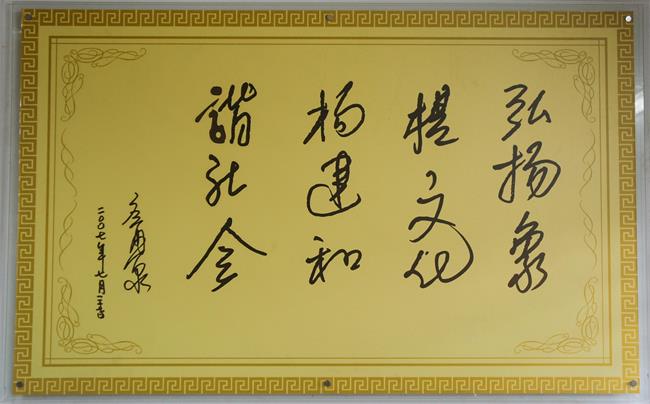 弘扬象
棋文化
构建和
谐社会
二〇〇七年七月